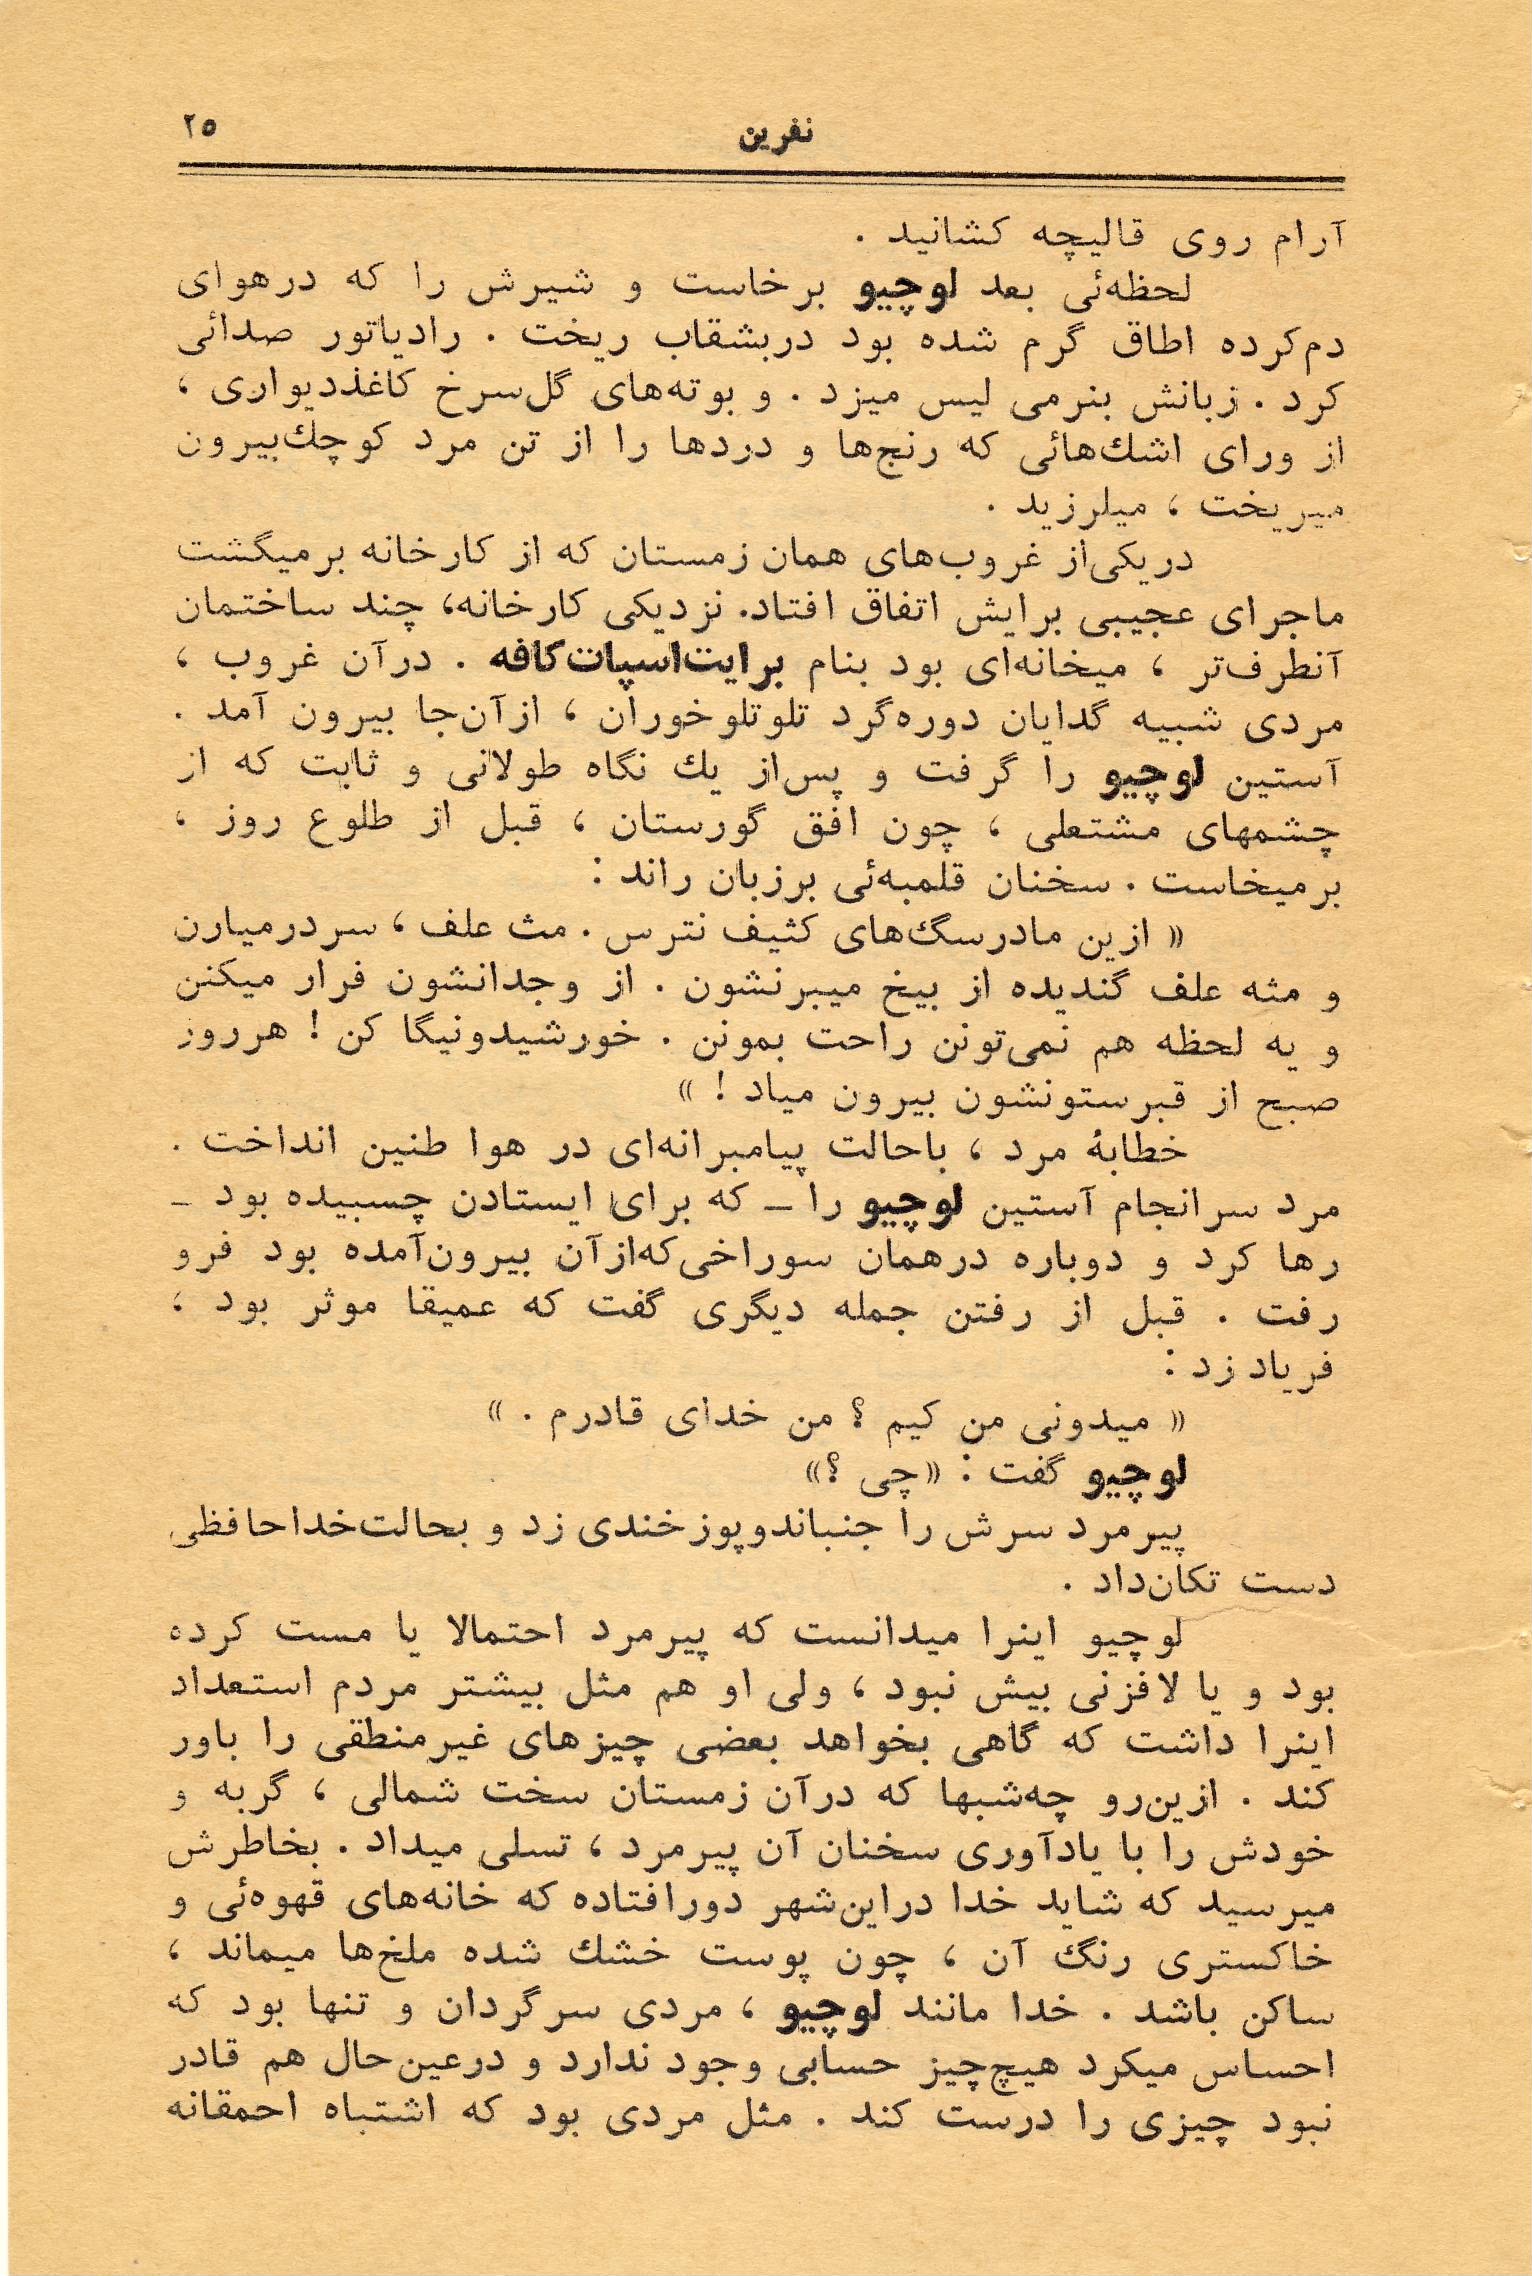 نفرین
۲۵
آرام روی قالیچه کشانید .
لحظه‌ئی بعد لوچیو برخاست و شیرش را که درهوای
دم‌کرده اطاق گرم شده بود دربشقاب ریخت . رادیاتور صدائی
کرد . زبانش بنرمی لیس میزد . و بوته‌های گل‌سرخ کاغذدیواری ،
از ورای اشك‌هائی که رنج‌ها و دردها را از تن مرد کوچك‌بیرون
میریخت ، میلرزید .
دریکی‌از غروب‌های همان زمستان که از کارخانه برمیگشت
ماجرای عجیبی برایش اتفاق افتاد. نزدیکی کارخانه، چند ساختمان
آنطرف‌تر ، میخانه‌ای بود بنام برایت‌اسپات‌کافه . درآن غروب ،
مردی شبیه گدایان دوره‌گرد تلوتلوخوران ، ازآن‌جا بیرون آمد .
آستین لوچیو را گرفت و پس‌از یك نگاه طولانی و ثابت که از
چشمهای مشتعلی ، چون افق گورستان ، قبل از طلوع روز ،
برمیخاست . سخنان قلمبه‌ئی برزبان راند :
« ازین مادرسگ‌های کثیف نترس . مث علف ، سردرمیارن
و مثه علف گندیده از بیخ میبرنشون . از وجدانشون فرار میکنن
و یه لحظه هم نمی‌تونن راحت بمونن . خورشیدونیگا کن ! هرروز
صبح از قبرستونشون بیرون میاد ! »
خطابهٔ مرد ، باحالت پیامبرانه‌ای در هوا طنین انداخت .
مرد سرانجام آستین لوچیو را ــ که برای ایستادن چسبیده بود ــ
رها کرد و دوباره درهمان سوراخی‌که‌ازآن بیرون‌آمده بود فرو
رفت . قبل از رفتن جمله دیگری گفت که عمیقا موثر بود ،
فریاد زد :
« میدونی من کیم ؟ من خدای قادرم . »
لوچیو گفت : «چی ؟»
پیرمرد سرش را جنباندوپوزخندی زد و بحالت‌خداحافظی
دست تکان‌داد .
لوچیو اینرا میدانست که پیرمرد احتمالا یا مست کرده
بود و یا لافزنی بیش نبود ، ولی او هم مثل بیشتر مردم استعداد
اینرا داشت که گاهی بخواهد بعضی چیزهای غیرمنطقی را باور
کند . ازین‌رو چه‌شبها که درآن زمستان سخت شمالی ، گربه و
خودش را با یادآوری سخنان آن پیرمرد ، تسلی میداد . بخاطرش
میرسید که شاید خدا دراین‌شهر دورافتاده که خانه‌های قهوه‌ئی و
خاکستری رنگ آن ، چون پوست خشك شده ملخ‌ها میماند ،
ساکن باشد . خدا مانند لوچیو ، مردی سرگردان و تنها بود که
احساس میکرد هیچ‌چیز حسابی وجود ندارد و درعین‌حال هم قادر
نبود چیزی را درست کند . مثل مردی بود که اشتباه احمقانه